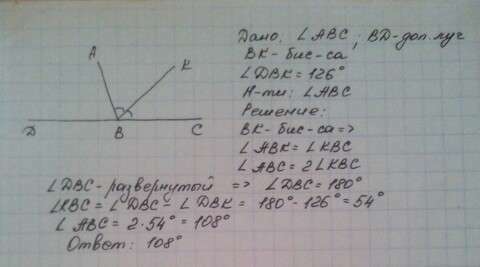 A
K
D
B
C
Дано: ∠ABC; BD-доп. луч
BK-бис-са
∠DBK=126°
Н-ти: ∠ABC
Решение:
BK-бис-са=>
∠ABK=∠KBC
∠ABC=2∠KBC
∠DBC-развернутый => ∠DBC=180°
∠KBC=∠DBC-∠DBK = 180°-126°=54°
∠ABC=2·54°=108°
Ответ: 108°